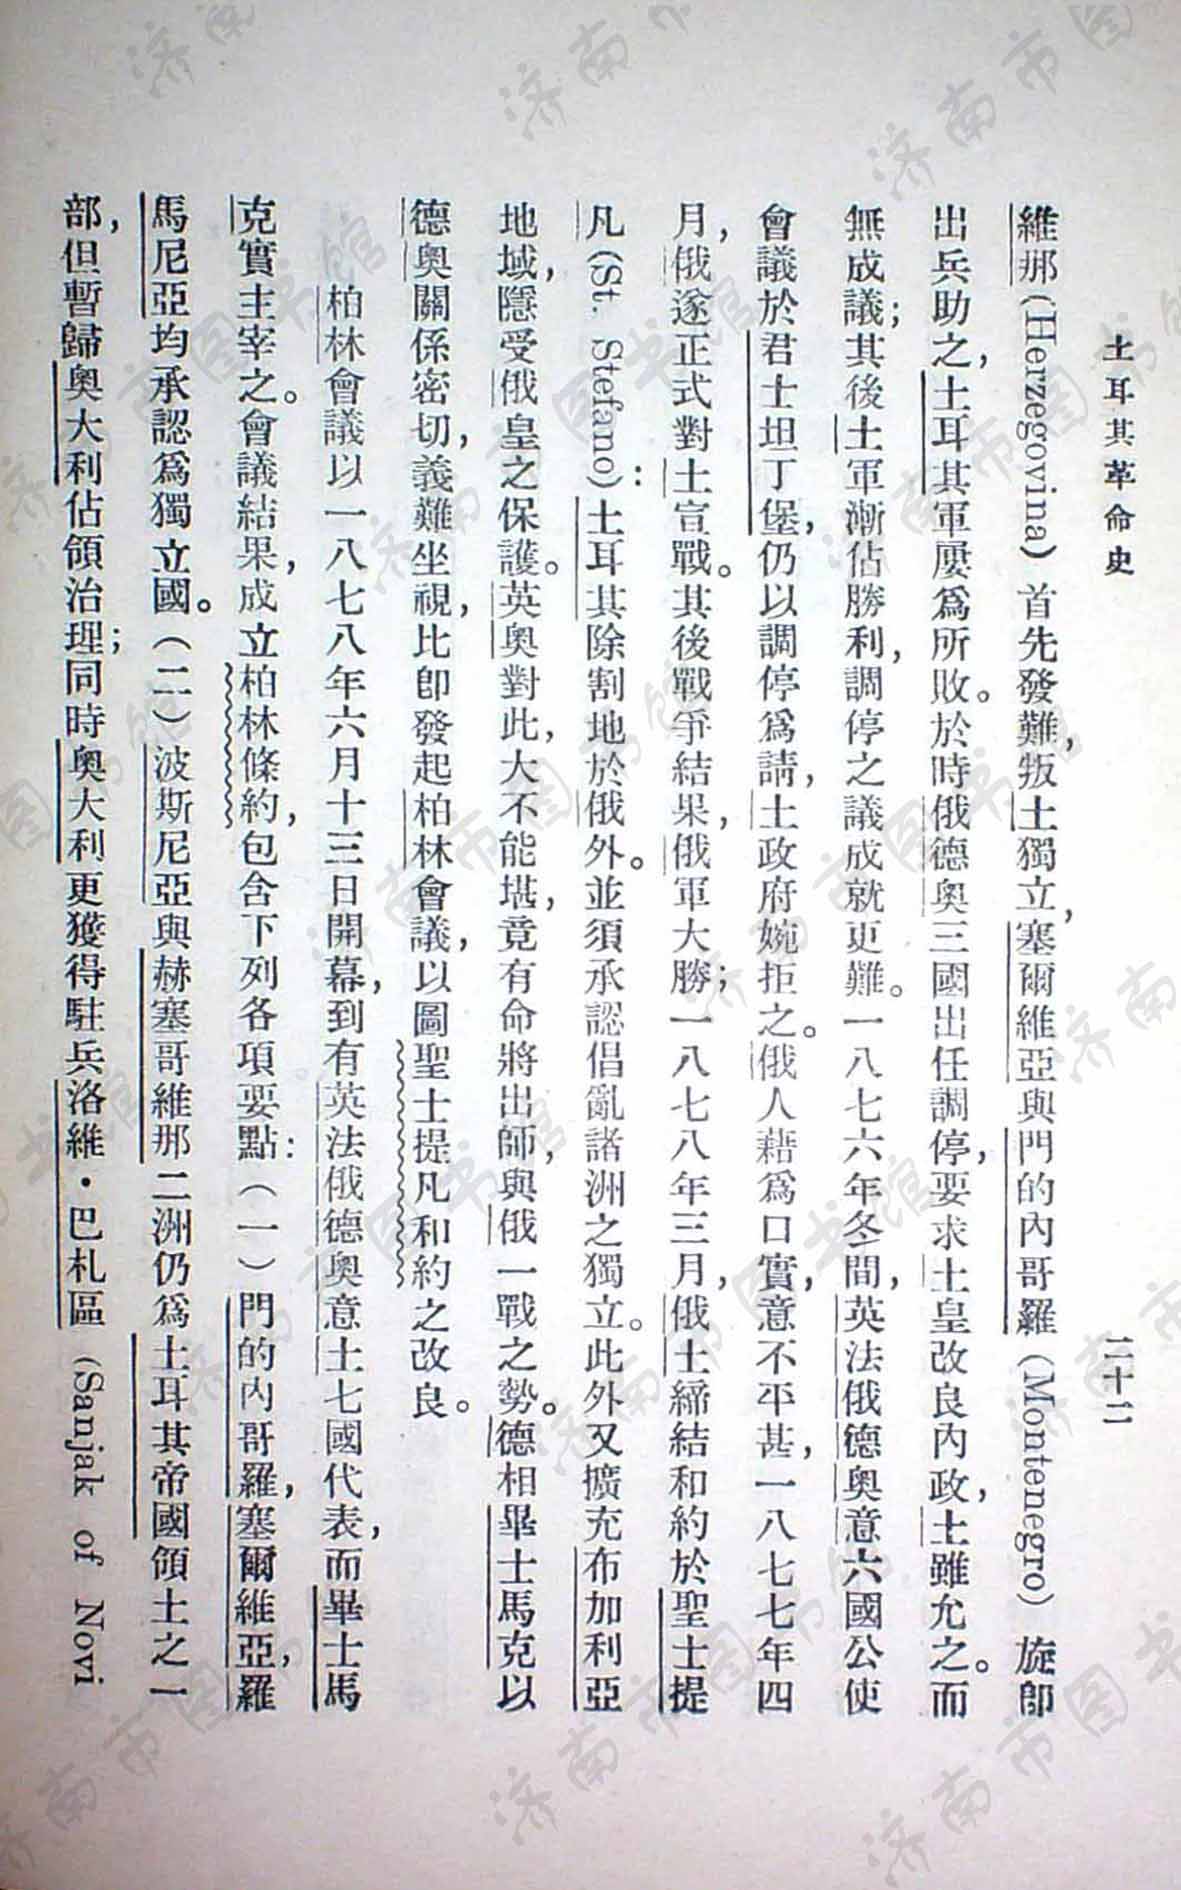 土耳其革命史
二十二
維那(Herzegovina)首先發難，叛土獨立，塞爾維亞與門的內哥羅(Montenegro)旋卽
出兵助之，土耳其軍屢爲所敗。於時俄德奧三國出任調停，要求土皇改良內政，土雖允之。而
無成議；其後土軍漸佔勝利，調停之議成就更難。一八七六年冬間，英法俄德奧意六國公使
會議於君士坦丁堡，仍以調停爲請，土政府婉拒之。俄人藉爲口實，意不平甚，一八七七年四
月，俄遂正式對土宣戰。其後戰爭結果，俄軍大勝；一八七八年三月，俄土締結和約於聖士提
凡(St. Stefano)：土耳其除割地於俄外。並須承認倡亂諸洲之獨立。此外又擴充布加利亞
地域，隱受俄皇之保護。英奧對此，大不能堪，竟有命將出師，與俄一戰之勢。德相畢士馬克以
德奧關係密切，義難坐視，比卽發起柏林會議，以圖聖士提凡和約之改良。
柏林會議以一八七八年六月十三日開幕，到有英法俄德奧意土七國代表，而畢士馬
克實主宰之。會議結果，成立柏林條約，包含下列各項要點：(一)門的內哥羅，塞爾維亞，羅
馬尼亞均承認爲獨立國。(二)波斯尼亞與赫塞哥維那二洲仍爲土耳其帝國領土之一
部，但暫歸奧大利佔領治理；同時奧大利更獲得駐兵洛維·巴札區(Sanjak of Novi
济南市图书馆